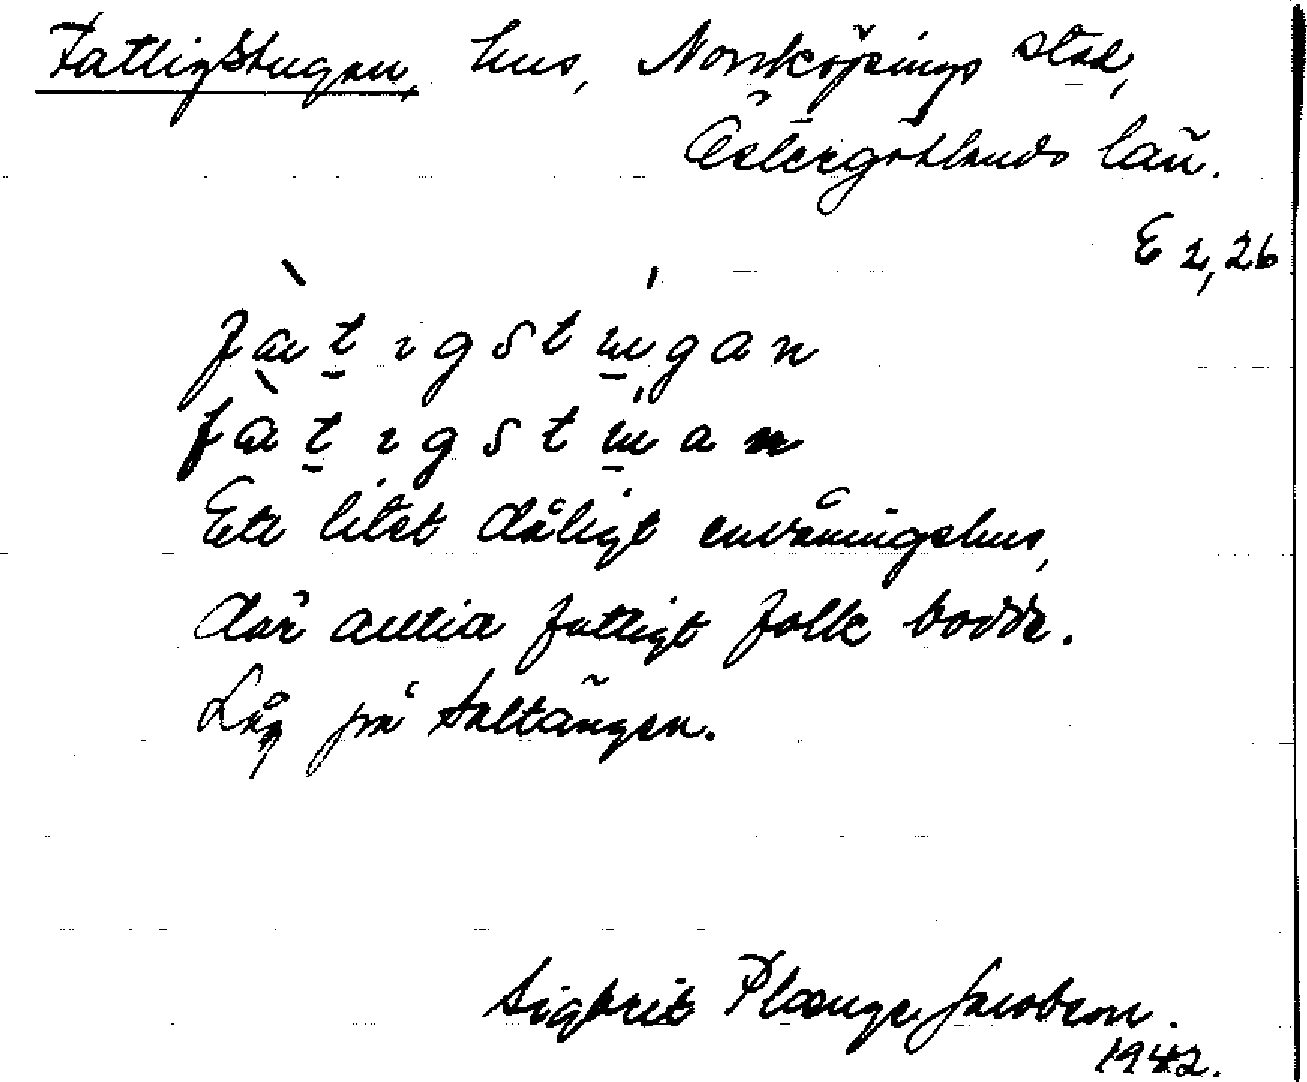 Fattigstugan, hus, Norrköpings stad,
Östergötlands län.
E 2,26
fàt̠ıgstu̠gan
fàt̠ıgstu̠an
Ett litet dåligt envåningshus,
där alltid fattigt folk bodde.
Låg på Saltängen.
Sigbrit Plænge Jacobson.
1942.